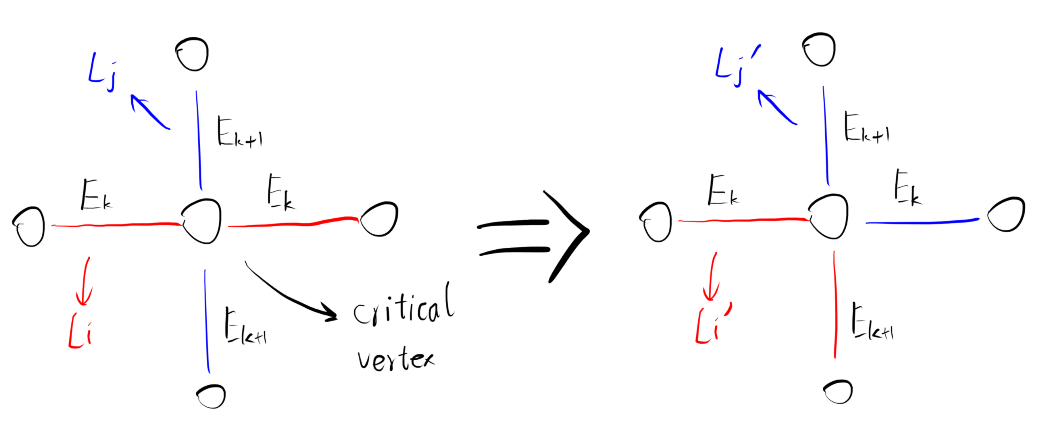 Lj
E_{k+1}
E_k
E_k
Li
E_{k+1}
critical
vertex
Lj'
E_{k+1}
E_k
E_k
Li'
E_{k+1}